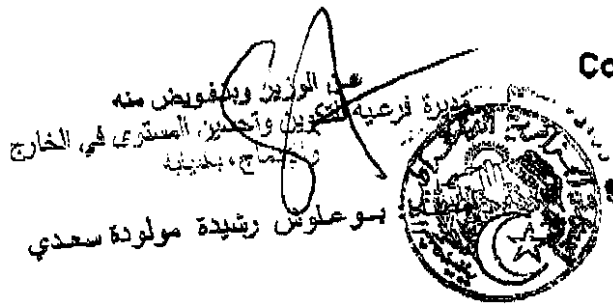 Co
عن الوزير وبتفويض منه
مديرة فرعية للتكوين وتحسين المستوى في الخارج
بوعلوش رشيدة مولودة سعدي